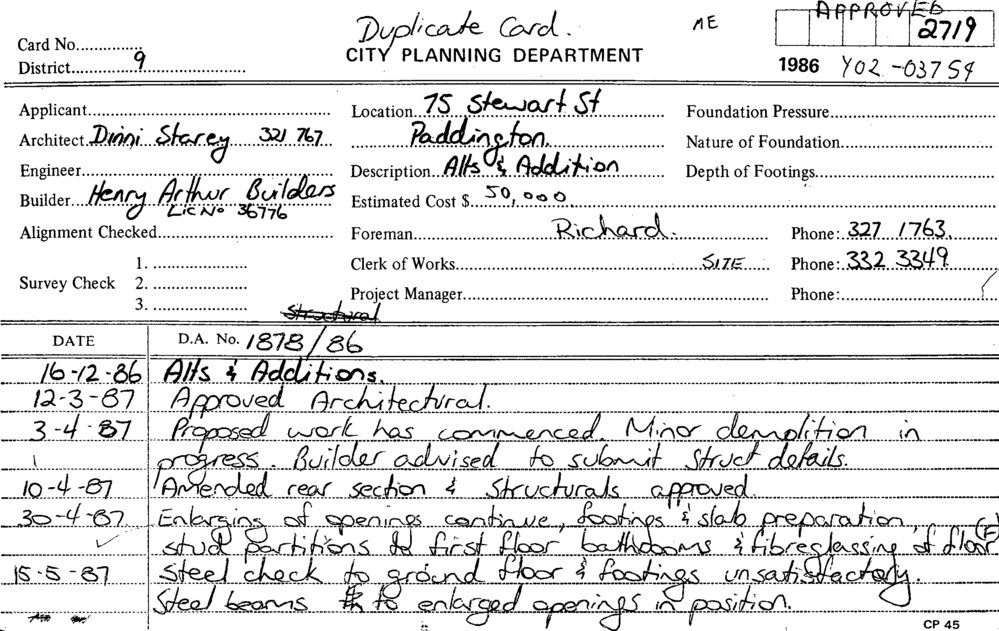 Duplicate Card. ME APPROVED
Card No............... 2719
CITY PLANNING DEPARTMENT
District 9 1986 Y02-03754
Applicant Location 75 Stewart St Foundation Pressure
Architect Dinni Starey 321 767 Paddington. Nature of Foundation
Engineer Description Alts & Addition Depth of Footings
Builder Henry Arthur Builders Estimated Cost $ 50,000
Lic No 36776
Alignment Checked Foreman Richard. Phone: 327 1763.
1. Clerk of Works SITE Phone: 332 3349
Survey Check 2.
Project Manager Phone:
3. Structural
DATE D.A. No. 1878/86
16-12-86 Alts & Additions.
12-3-87 Approved Architectural.
3-4-87 Proposed work has commenced. Minor demolition in
progress. Builder advised to submit Struct details.
10-4-87 Amended rear section & Structurals approved.
30-4-87 Enlarging of openings continue, footings & slab preparation,
stud partitions to first floor bathdooms & fibreglassing of floor (F)
15-5-87 Steel check to ground floor & footings unsatisfactory.
Steel beams to enlarged openings in position.
CP 45